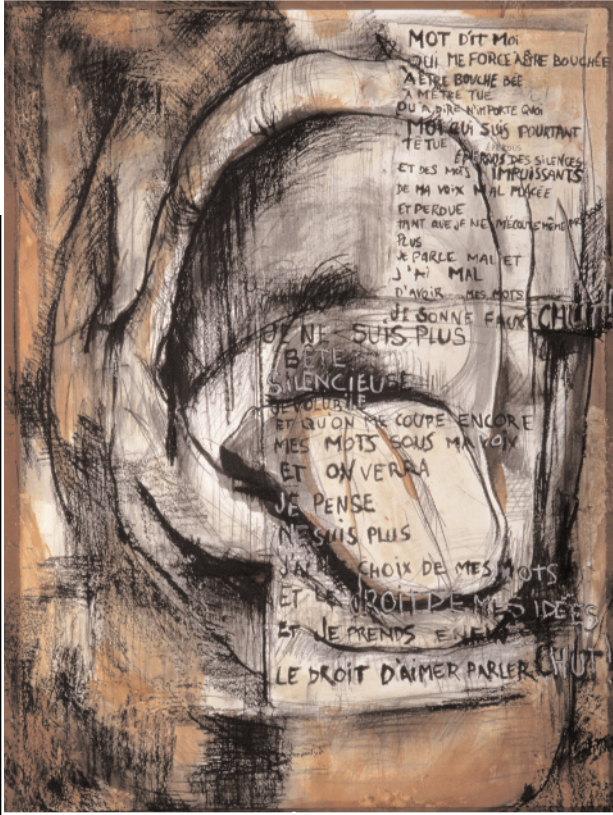 MOT D'IT MOI
QUI ME FORCE À ÊTRE BOUCHÉE
À ÊTRE BOUCHE BÉE
À M'ÊTRE TUE
OU À DIRE N'IMPORTE QUOI
MOI QUI SUIS POURTANT
TÊTUE
ÉPERDUS DES SILENCES
ET DES MOTS IMPUISSANTS
DE MA VOIX MAL PLACÉE
ET PERDUE
TANT QUE JE NE M'ÉCOUTE MÊME PRESQUE
PLUS
JE PARLE MAL ET
J'AI MAL
D'AVOIR MES MOTS
JE SONNE FAUX CHUT!
JE NE SUIS PLUS
BÊTE
SILENCIEUSE
JE
ET QU'ON ME COUPE ENCORE
MES MOTS SOUS MA VOIX
ET ON VERRA
JE PENSE
NE SUIS PLUS
J'AI CHOIX DE MES MOTS
ET LE DROIT DE MES IDÉES
ET JE PRENDS ENFIN
LE DROIT D'AIMER PARLER CHUT!